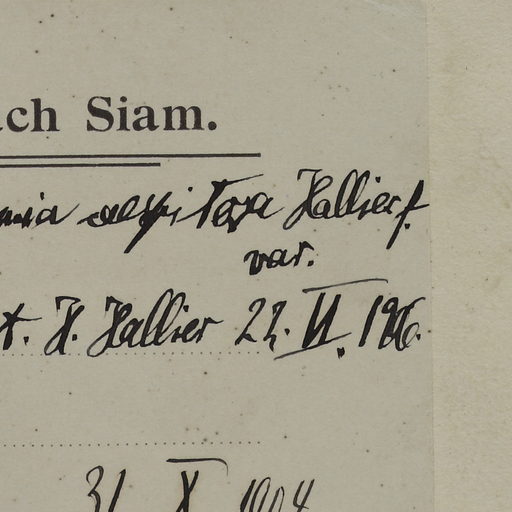 ach Siam.
mia caespitosa Hallier f.
var.
t. H. Hallier 22. VI. 1906.
31 X 1904